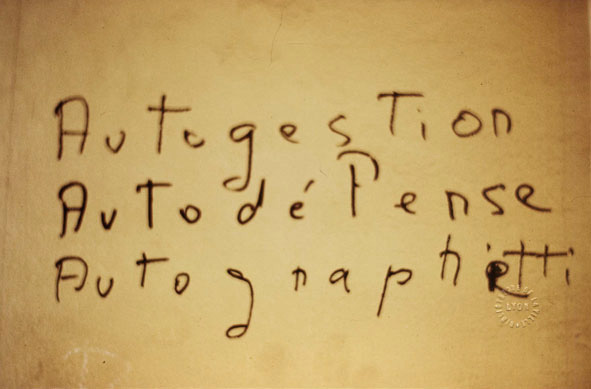 AuTogesTion
AuTodéPense
AuTographitti
LYON